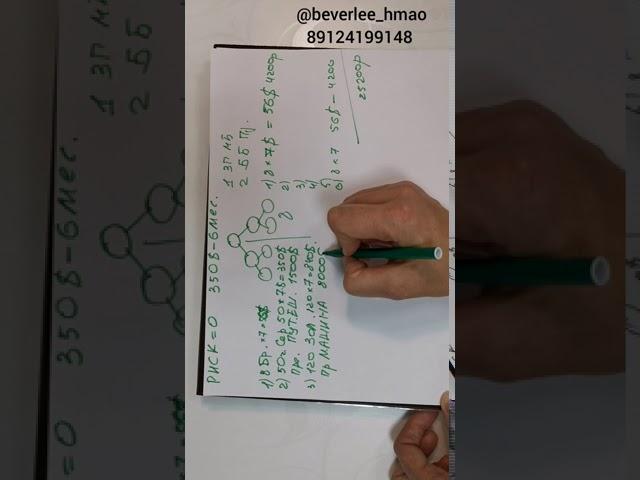 @beverlee_hmao
89124199148
РИСК=0 350$-6 мес.
1 ЗП МБ
2 ББ ПЦ.
1) 8 Бр. × 7 =
2) 50 Сер 50×7$=350$
Пре. ПУТЕШ. 1500$
3) 120 Зол. 120×7=840$
пр МАШИНА 8000
8
1) 8×7$ = 56$ 4200р
2)
3)
4)
5)
6) 8×7 56$ - 4200
25200р